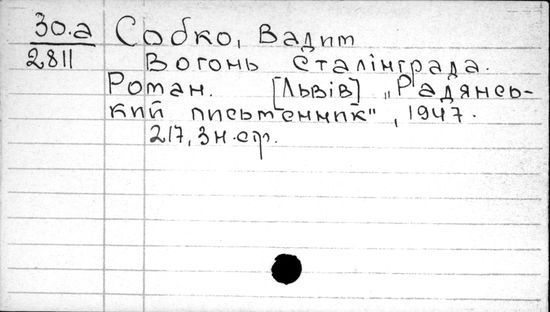 30.а
2811
Собко, Вадим
Вогонь Сталінграда.
Роман. [Львів] „Радянсь-
кий письменник", 1947.
217, 3 н. стр.